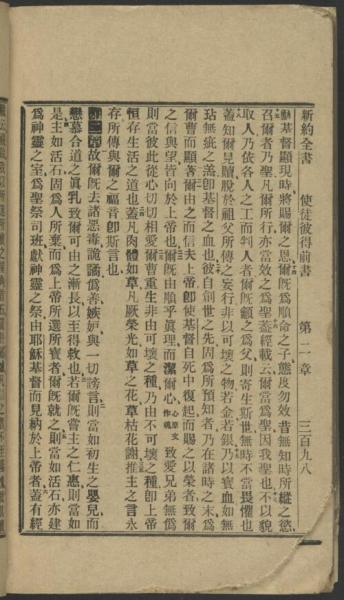 新約全書 使徒彼得前書 第二章 三百九八
基督顯現時將賜爾之恩爾旣爲順命之子態度勿效昔無知時所縱之慾
召爾者乃聖凡爾所行亦當效之爲聖蓋經載云爾當爲聖因我聖也不以貌
取人乃依各人之工而判人者爾旣龥之爲父則寄生斯世無時不當畏懼也
蓋知爾見贖脫於祖父所傳之妄行非以可壞之物若金若銀乃以寶血如無
玷無疵之羔卽基督之血也彼自創世之先固爲所預知者乃在諸時之末爲
爾曹而顯著爾由之而信夫上帝卽使基督自死中復起而賜之以榮者致爾
之信與望皆向於上帝也爾旣由順乎眞理而潔爾心心原文作魂致愛兄弟無僞
則當彼此從心切切相愛爾曹重生非由可壞之種乃由不可壞之種卽上帝
恒存生活之道也蓋凡肉體如草凡厥榮光如草之花草枯花謝推主之言永
存所傳與爾之福音卽斯言也
故爾旣去諸惡毒詭譎僞善嫉妒與一切謗言則當如初生之嬰兒而
戀慕合道之眞乳致爾可由之漸長以主得救也若爾旣嘗主之仁惠則當如
是主如活石固爲人所棄而爲上帝所選所寶者爾旣就之則當如活石亦建
爲神靈之室爲聖祭司班獻神靈之祭由耶穌基督而見納於上帝者蓋有經